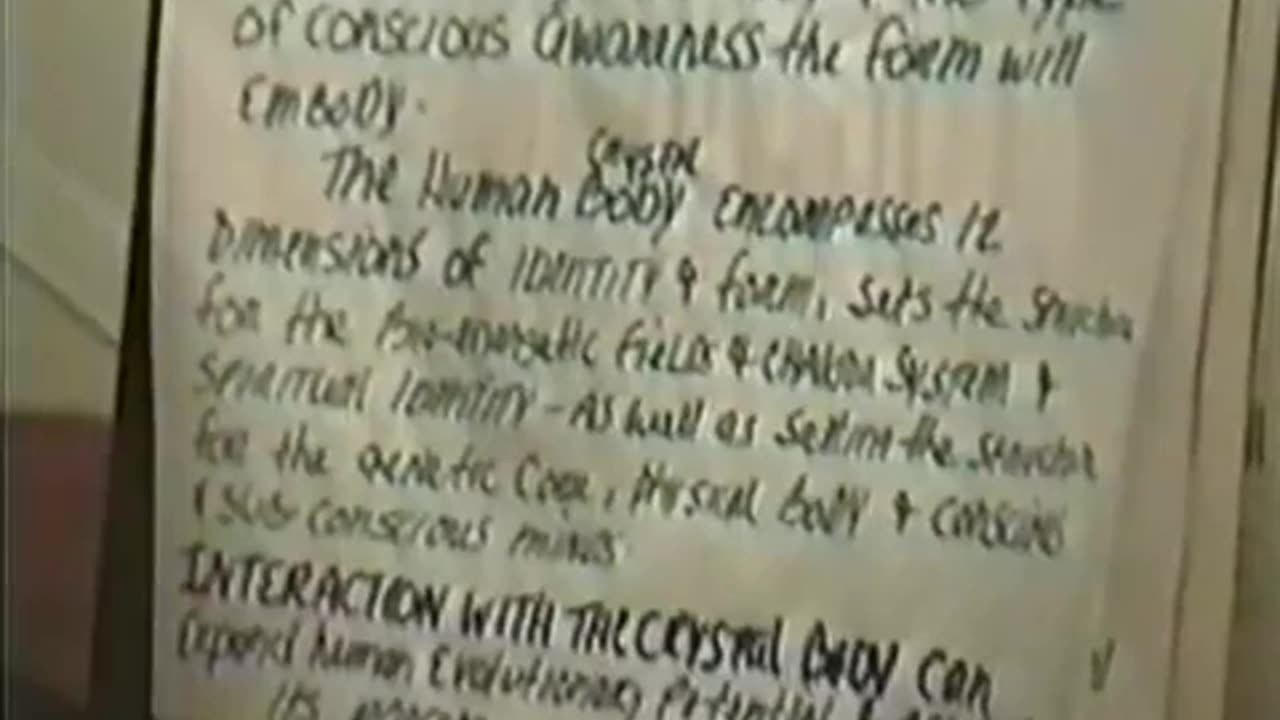 the Type
of conscious Awareness the form will
EMBODY.
Crystal
The Human BODY ENCOMPASSES 12
DIMENSIONS of IDENTITY & form, sets the structure
for the Bio-energetic fields & CHAKRA SYSTEM &
SPIRITUAL IDENTITY - As well as setting the structure
for the genetic Code, Physical body & conscious
& Sub conscious minds
INTERACTION WITH THE CRYSTAL BODY Can
Expand human Evolutionary Potential &
its